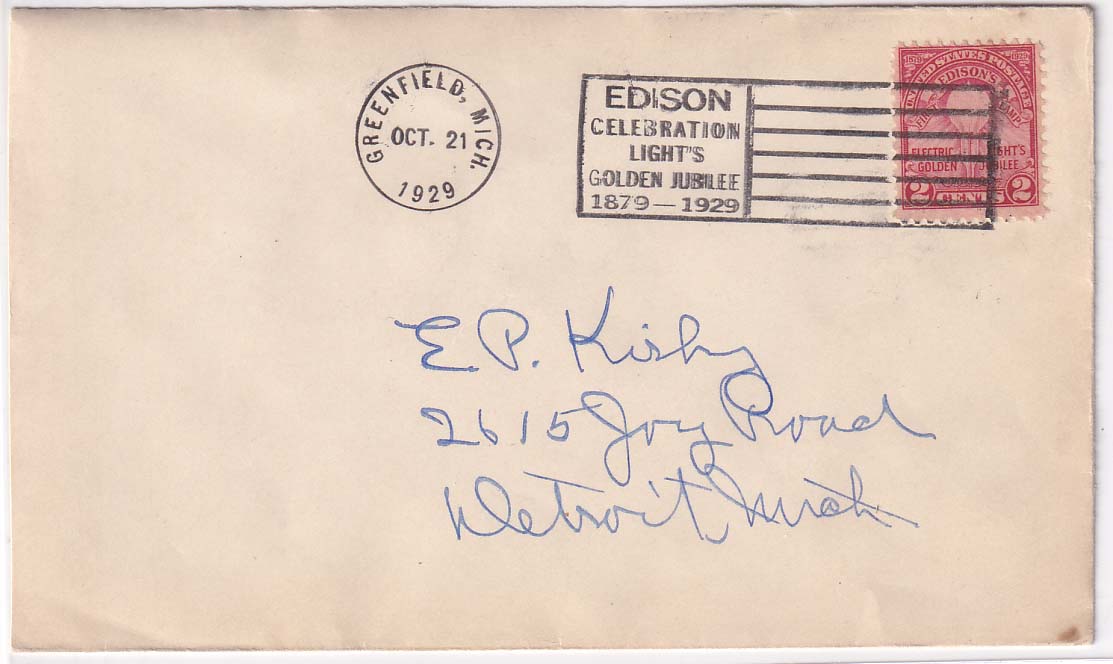 GREENFIELD, MICH.
OCT. 21
1929
EDISON
CELEBRATION
LIGHT'S
GOLDEN JUBILEE
1879 — 1929
1879 UNITED STATES POSTAGE 1929
EDISON'S
FIRST LAMP
ELECTRIC LIGHT'S
GOLDEN JUBILEE
2 CENTS 2
E. P. Kirby
2615 Joy Road
Detroit, Mich